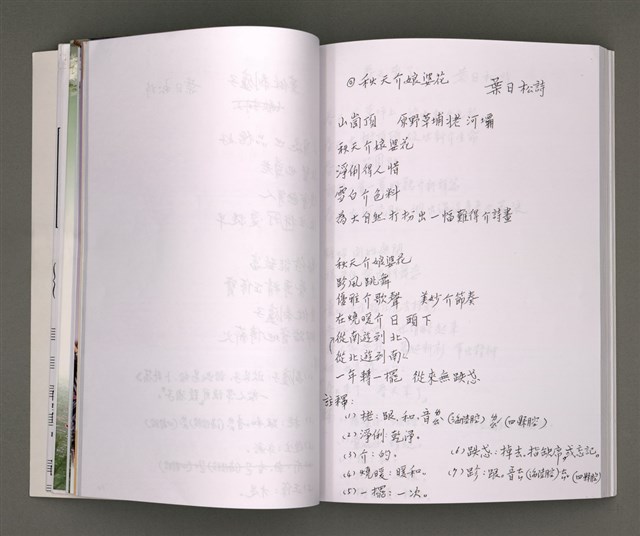 秋天介娘婆花 葉日松詩
山崗頂 原野草埔㧯河壩
秋天介娘婆花
淨俐得人惜
雪白介色料
為大自然打扮出一幅難得介詩畫
秋天介娘婆花
跈風跳舞
優雅介歌聲 美妙介節奏
在燒暖介日頭下
(從南遊到北
從北遊到南)
一年轉一擺 從來無跌忘
註釋:
(1)㧯:跟、和。音 (海陸腔) (四縣腔)
(2)淨俐:乾淨。
(3)介:的。
(4)燒暖:暖和。
(5)一擺:一次。
(6)跌忘:掉去,指缺席或忘記。
(7)跈:跟。音 (海陸腔) (四縣腔)